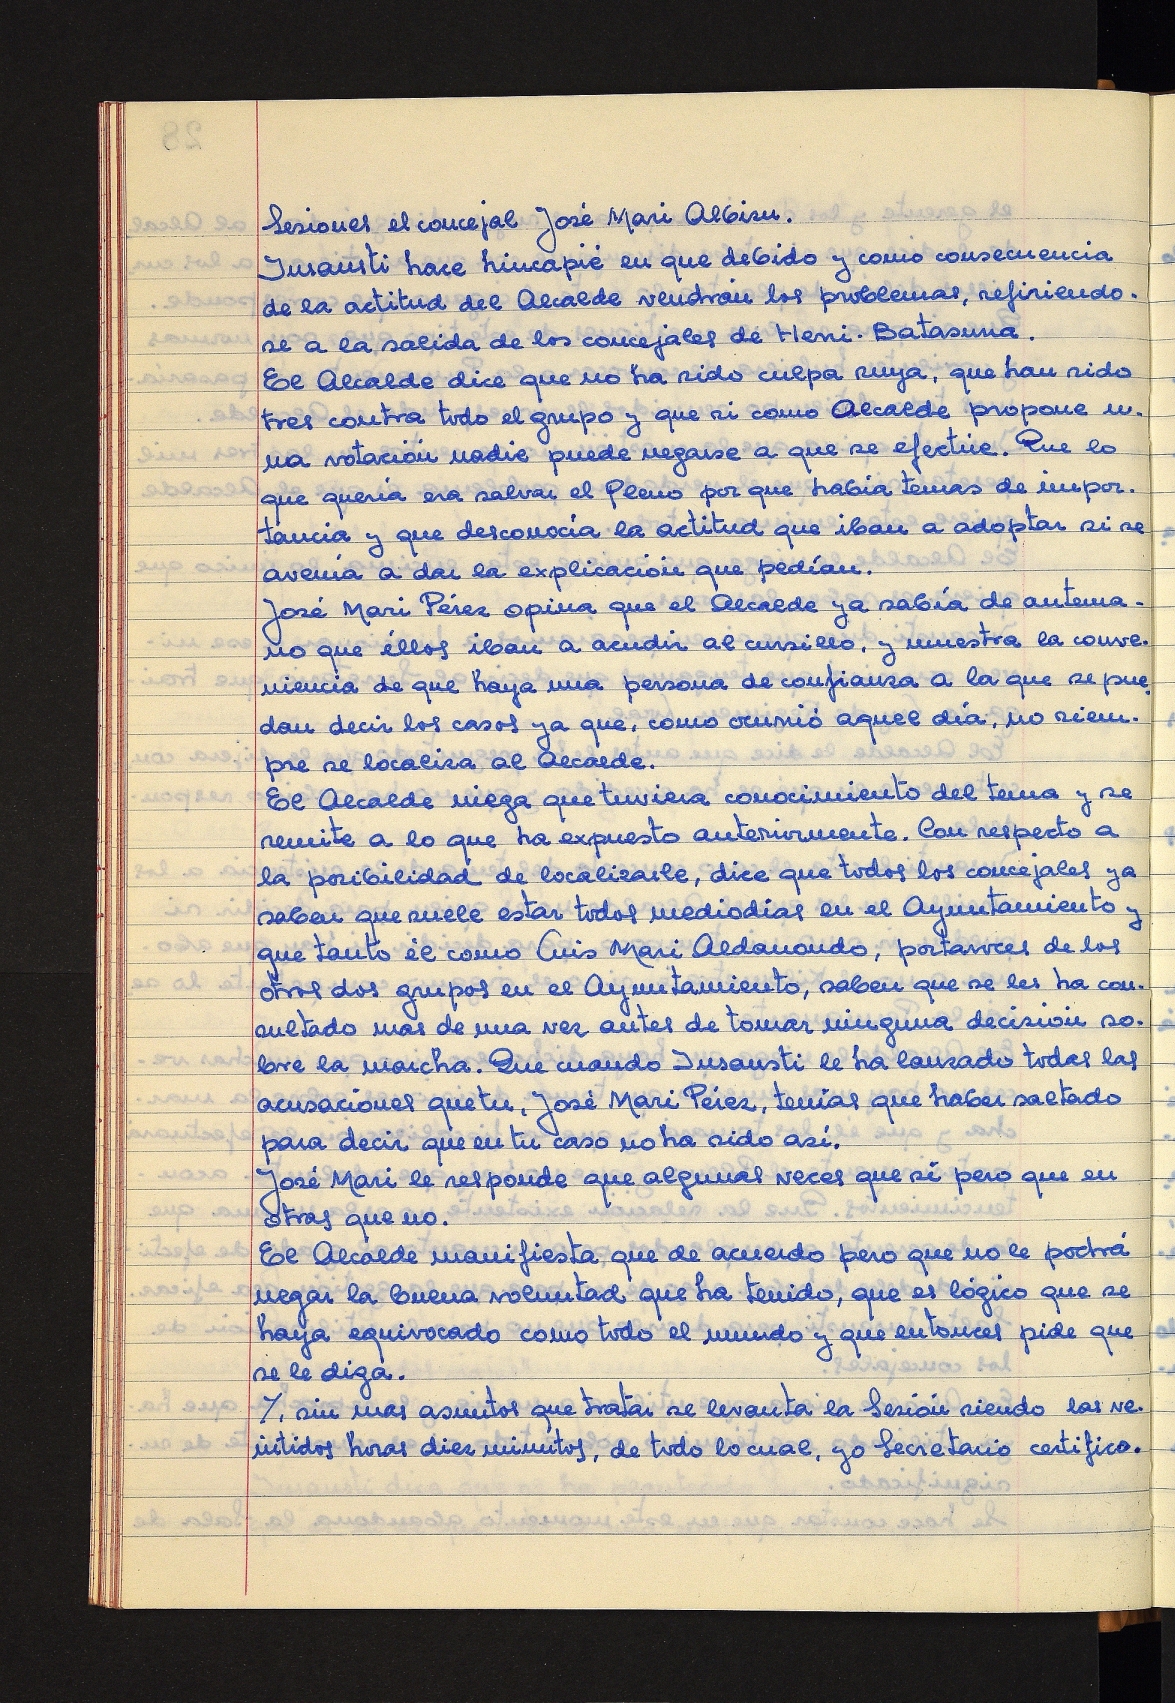 Sesiones el concejal José Mari Albisu.
Insausti hace hincapié en que debido y como consecuencia
de la actitud del Alcalde vendrán los problemas, refiriendo-
se a la salida de los concejales de Herri-Batasuna.
El Alcalde dice que no ha sido culpa suya, que han sido
tres contra todo el grupo y que si como Alcalde propone u-
na votación nadie puede negarse a que se efectúe. Que lo
que quería era salvar el Pleno por que había temas de impor-
tancia y que desconocía la actitud que iban a adoptar si se
avenía a dar la explicación que pedían.
José Mari Pérez opina que el Alcalde ya sabía de antema-
no que éllos iban a acudir al cursillo, y muestra la conve-
niencia de que haya una persona de confianza a la que se pue-
dan decir los casos ya que, como ocurrió aquel día, no siem-
pre se localiza al Alcalde.
El Alcalde niega que tuviera conocimiento del tema y se
remite a lo que ha expuesto anteriormente. Con respecto a
la posibilidad de localizarle, dice que todos los concejales ya
saben que suele estar todos mediodías en el Ayuntamiento y
que tanto él como Luis Mari Aldanondo, portavoces de los
otros dos grupos en el Ayuntamiento, saben que se les ha con-
sultado mas de una vez antes de tomar ninguna decisión so-
bre la marcha. Que cuando Insausti le ha lanzado todas las
acusaciones que tu, José Mari Pérez, tenías que haber saltado
para decir que en tu caso no ha sido así.
José Mari le responde que algunas veces que sí pero que en
otras que no.
El Alcalde manifiesta que de acuerdo pero que no le podrá
negar la buena voluntad que ha tenido, que es lógico que se
haya equivocado como todo el mundo y que entonces pide que
se le diga.
Y, sin mas asuntos que tratar se levanta la Sesión siendo las ve-
intidos horas diez minutos, de todo lo cual, yo Secretario certifico.